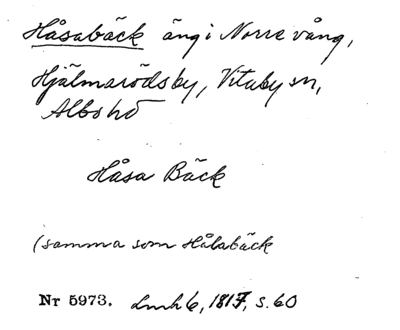 Håsabäck äng i Norre vång,
Hjälmarödsby, Vitaby sn,
Albo hd
Håsa Bäck
(samma som Hålabäck
Nr 5973. Lmh 6, 1817, s. 60